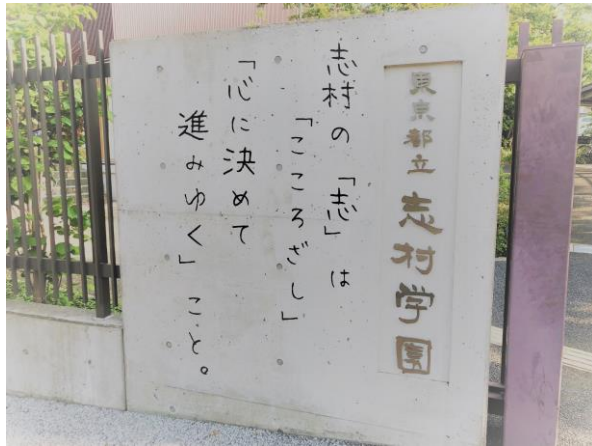 東京都立志村学園
志村の「志」は
「こころざし」
「心に決めて
進みゆく」こと。